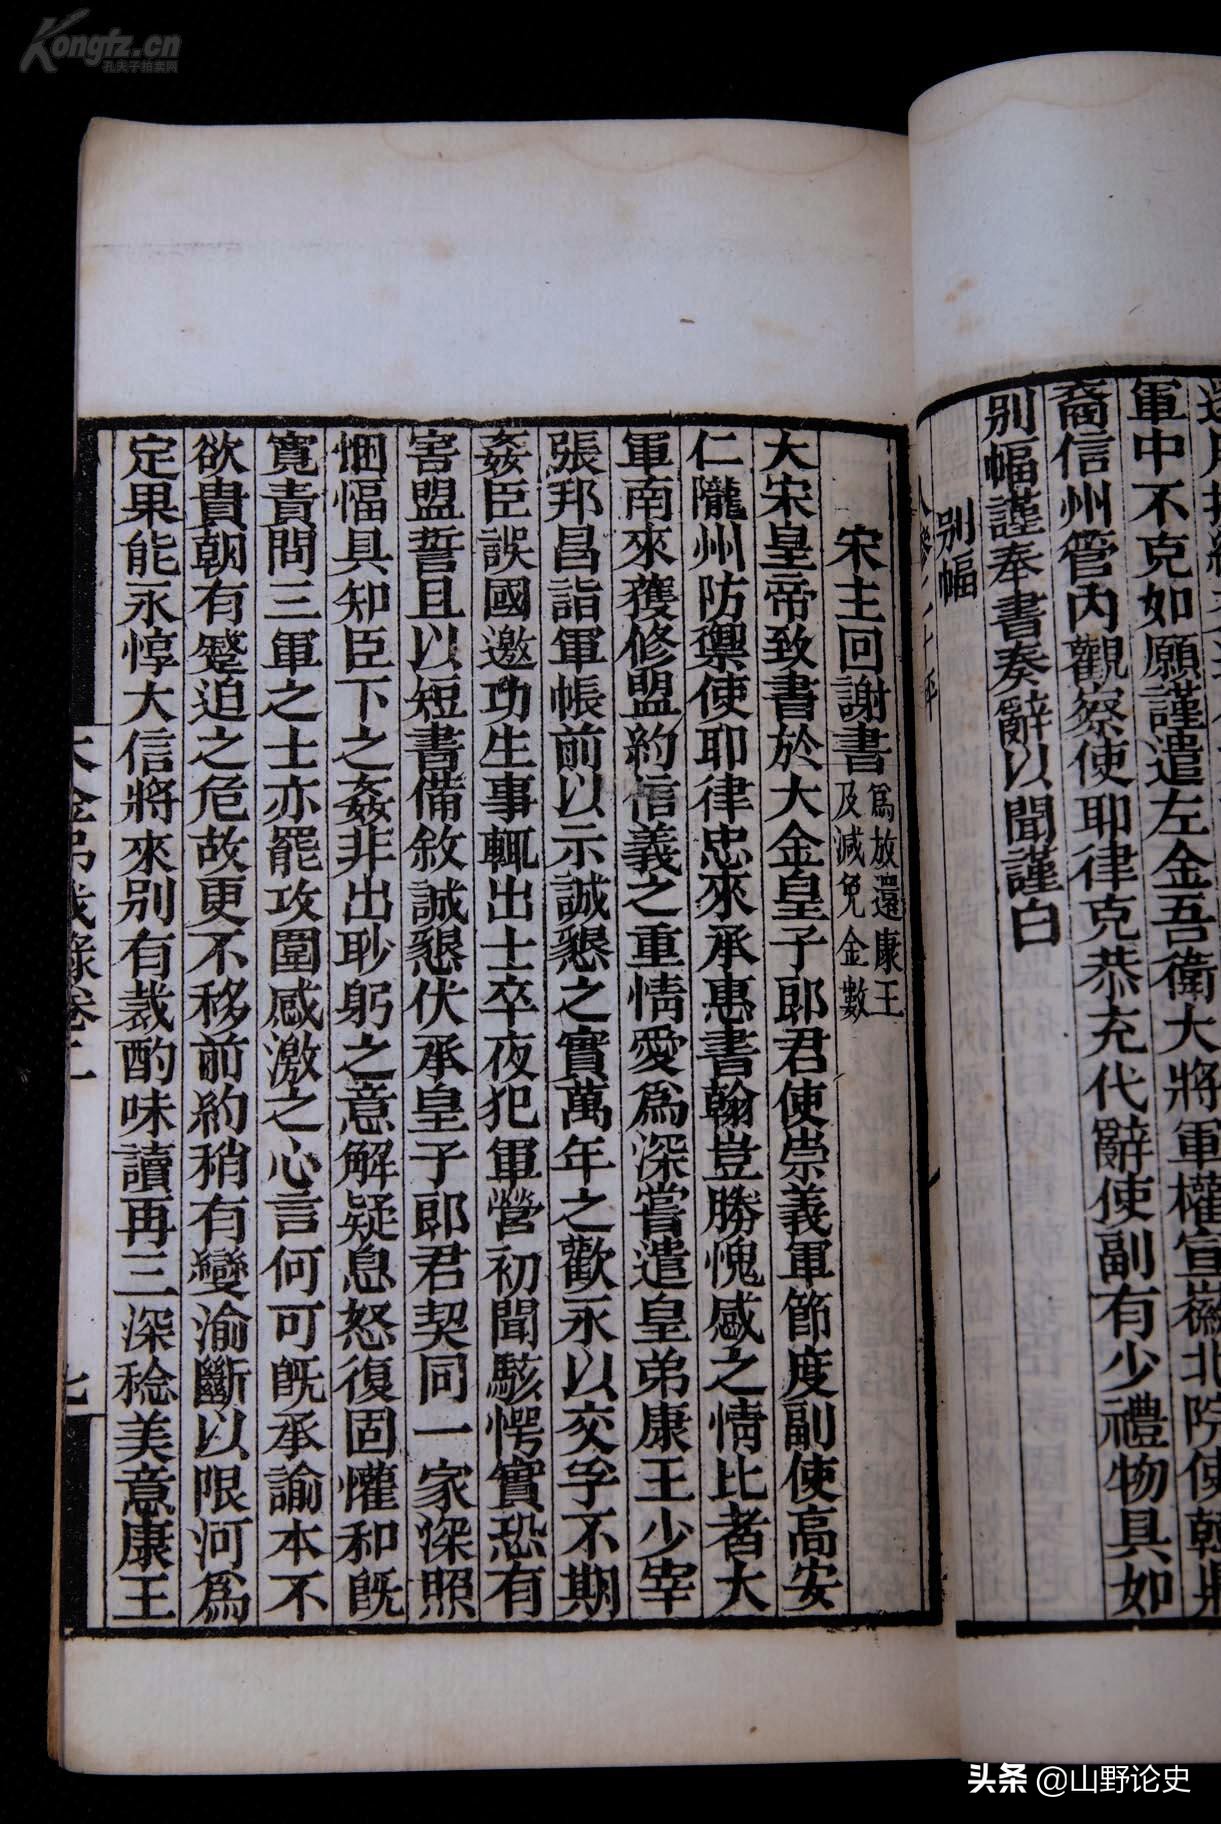 Kongfz.cn
孔夫子拍卖网
軍中不克如願謹遣左金吾衛大將軍權宣徽北院使韓
裔信州管內觀察使耶律克恭充代辭使副有少禮物具如
別幅謹奉書奏辭以聞謹白
別幅
宋主回謝書
爲放還康王
及減免金數
大宋皇帝致書於大金皇子郎君使崇義軍節度副使高安
仁隴州防禦使耶律忠來承惠書翰豈勝愧感之情比者大
軍南來獲修盟約信義之重情愛爲深嘗遣皇弟康王少宰
張邦昌詣軍帳前以示誠懇之實萬年之歡永以交孚不期
姦臣誤國邀功生事輒出士卒夜犯軍營初聞駭愕實恐有
害盟誓且以短書備敘誠懇伏承皇子郎君契同一家深照
悃愊具知臣下之姦非出眇躬之意解疑息怒復固懽和旣
寬責問三軍之士亦罷攻圍感激之心言何可旣承諭本不
欲貴朝有蹙迫之危故更不移前約稍有變渝斷以限河爲
定果能永惇大信將來別有裁酌味讀再三深稔美意康王
大金弔伐錄卷二
七
头条 @山野论史